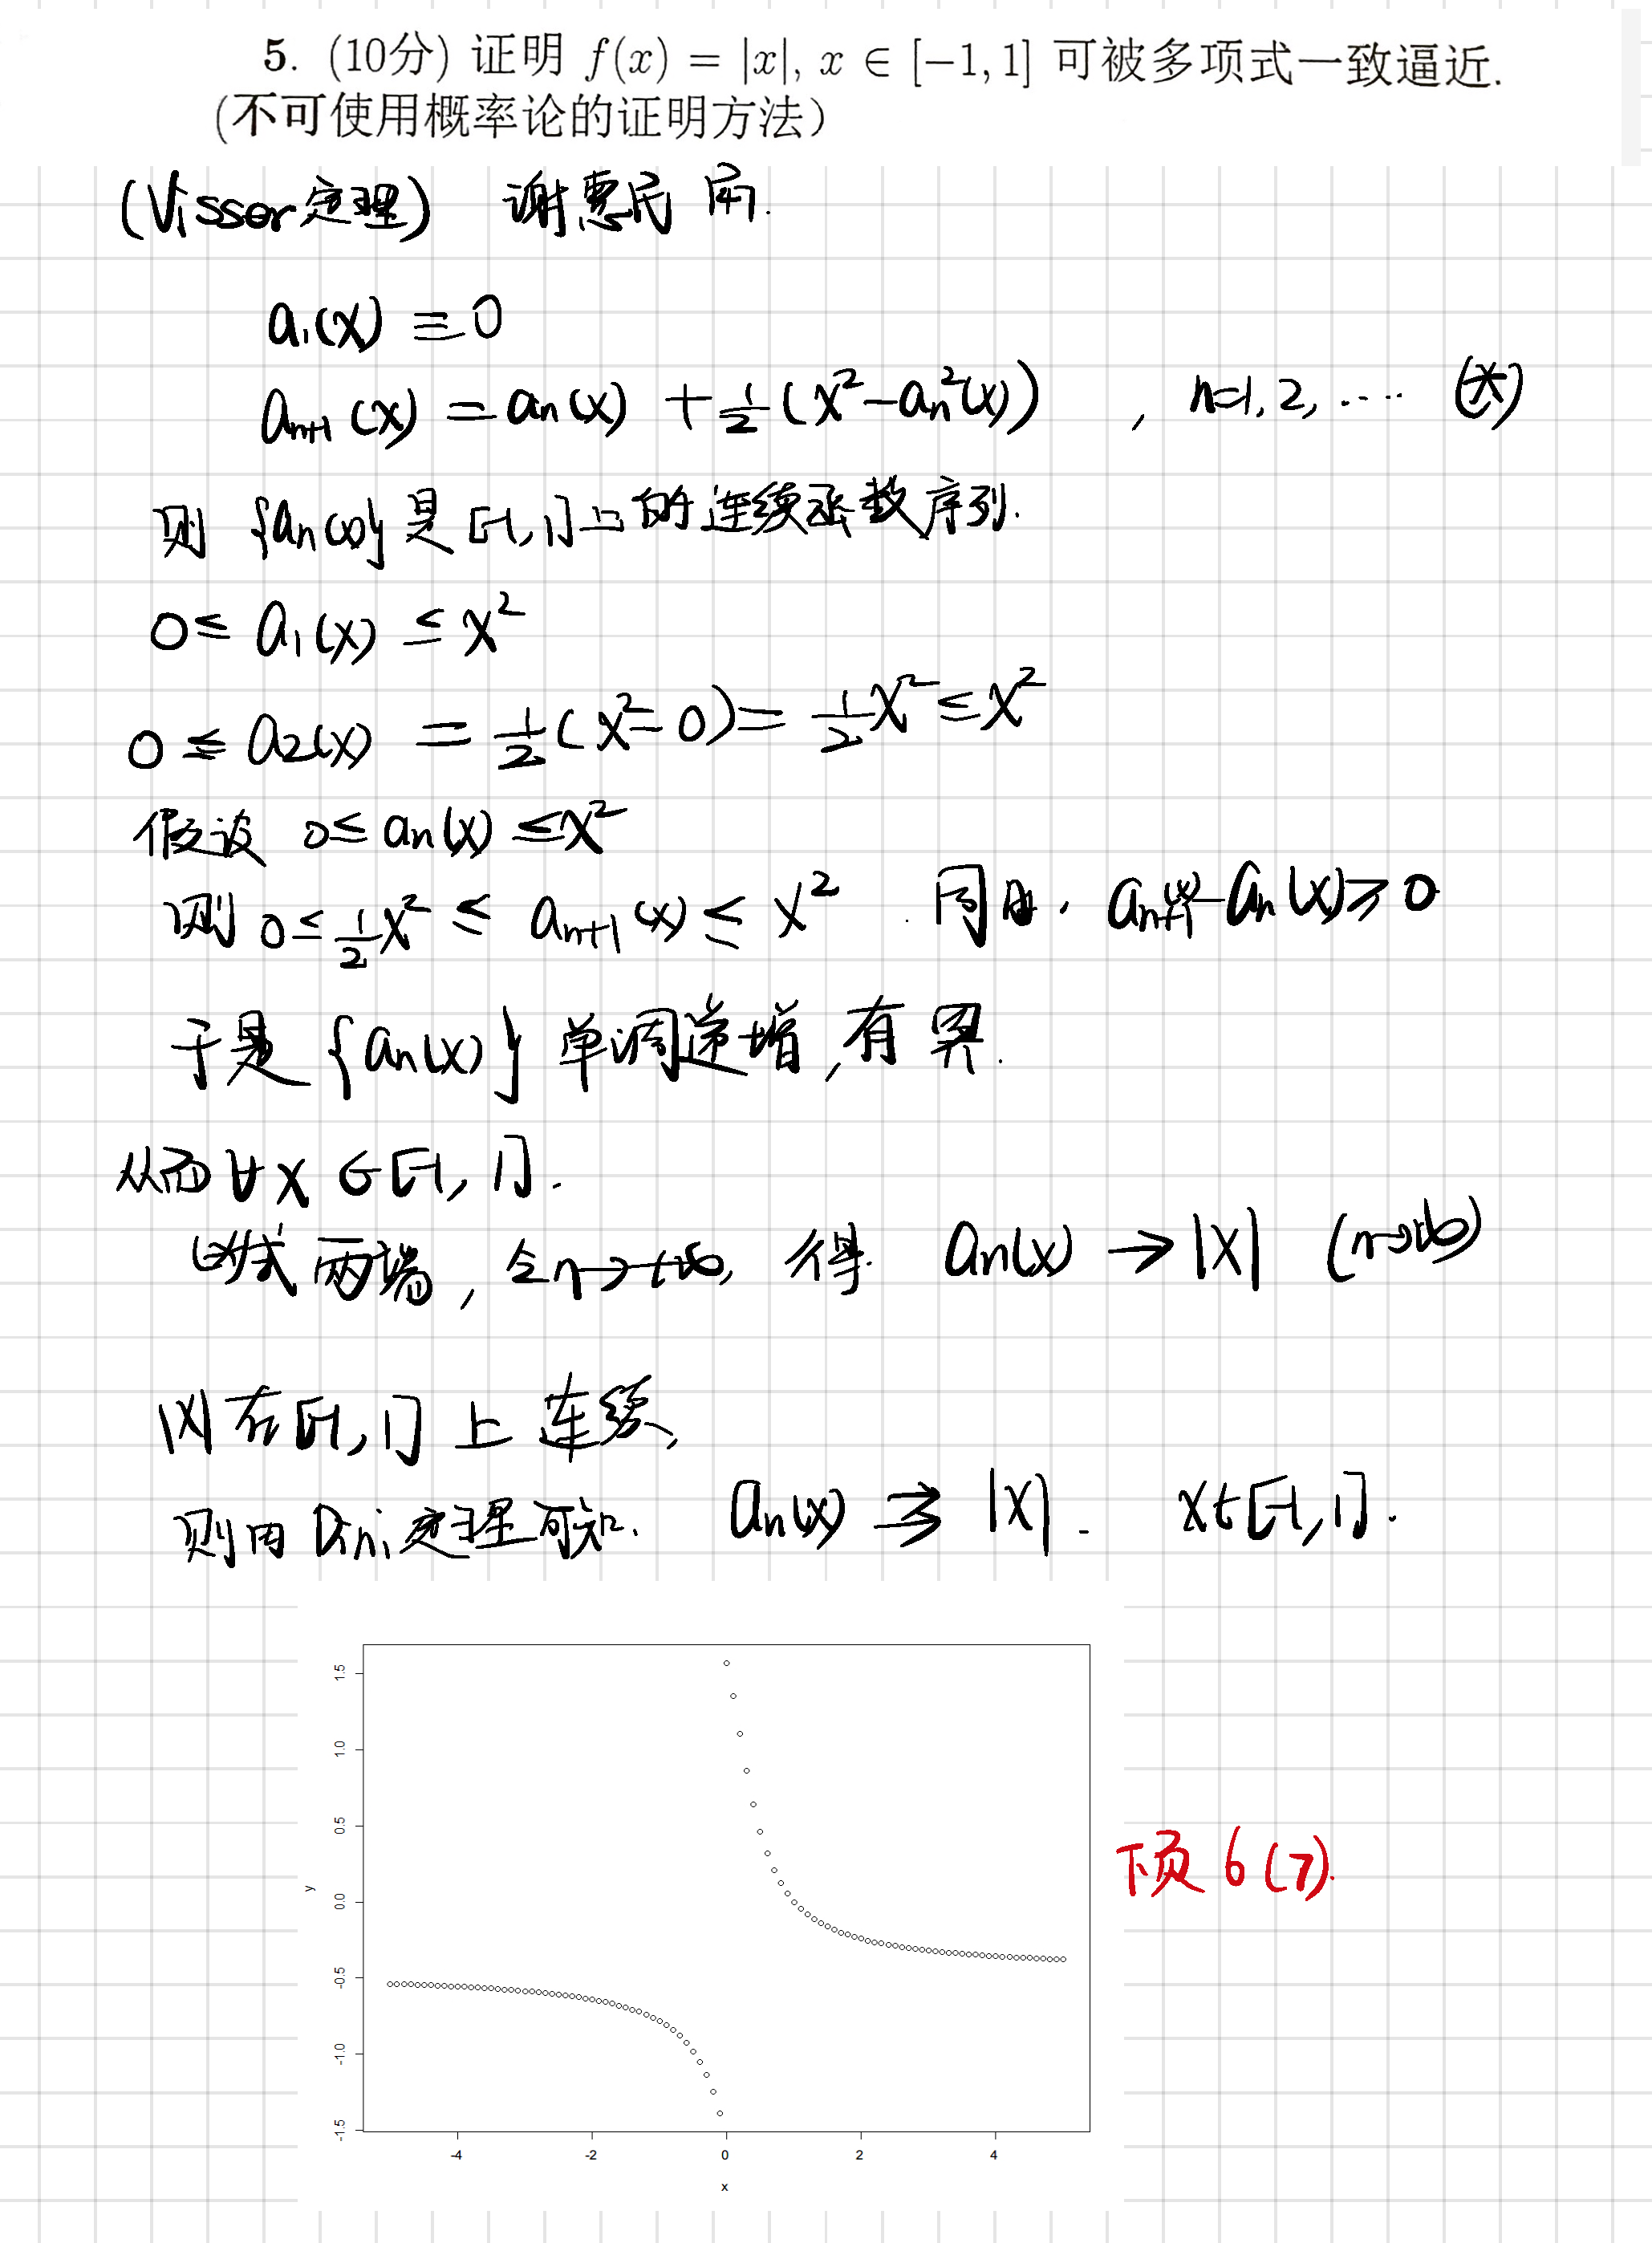 5. (10分) 证明 f(x) = |x|, x ∈ [−1, 1] 可被多项式一致逼近.
(不可使用概率论的证明方法)
(Visser定理) 谢惠民
a₁(x) ≡ 0
aₙ₊₁(x) = aₙ(x) + ½(x² − aₙ²(x)) , n=1, 2, ···· (*)
则 {aₙ(x)} 是 [-1, 1] 上的连续函数序列.
0 ≤ a₁(x) ≤ x²
0 ≤ a₂(x) = ½(x² − 0) = ½x² ≤ x²
假设 0 ≤ aₙ(x) ≤ x²
则 0 ≤ ½x² ≤ aₙ₊₁(x) ≤ x². 同时, aₙ₊₁(x) − aₙ(x) ≥ 0
于是 {aₙ(x)} 单调递增, 有界.
从而 ∀x ∈ [-1, 1].
(*)式两端, 令n→+∞, 得. aₙ(x) → |x| (n→+∞)
|x| 在 [-1, 1] 上连续,
则由 Dini 定理可知. aₙ(x) ⇉ |x|. x∈[-1, 1].
1.5
1.0
0.5
0.0
-0.5
-1.0
-1.5
y
-4 -2 0 2 4
x
下页 6(7).